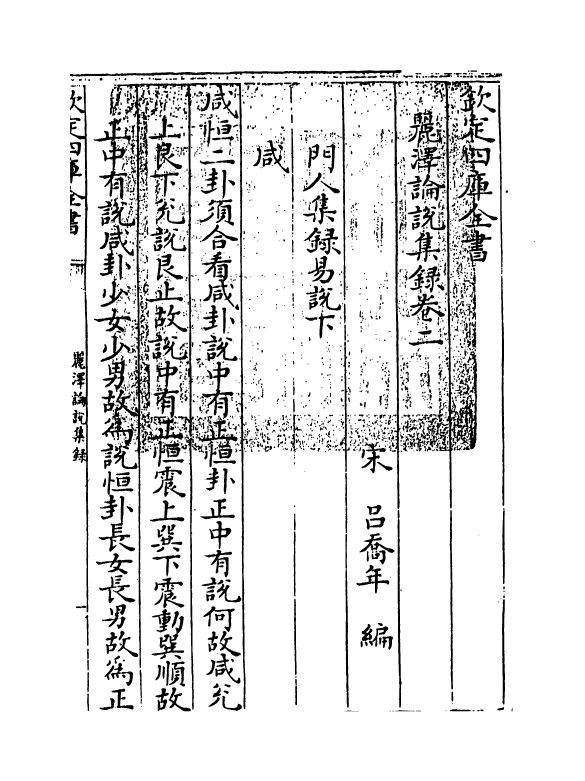 欽定四庫全書
麗澤論說集録卷二
宋　呂喬年　編
門人集録易說下
咸
咸恒二卦須合看咸卦說中有正恒卦正中有說何故咸兊
上艮下兊說艮止故說中有正恒震上巽下震動巽順故
正中有說咸卦少女少男故為說恒卦長女長男故為正
欽定四庫全書
麗澤論說集録
一